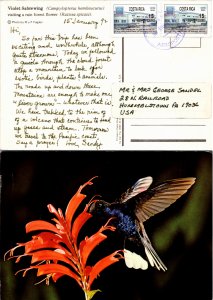 Violet Sabrewing (Campylopterus hemileucurus)
visiting a rain forest flower (Razisea spicata).
15 January 92
Hi,
So far this trip has been
exciting and worthwhile, although
quite strenuous. Today we followed
a guide through the cloud forest
atop a mountain to look for
exotic birds, plants, animals.
The roads up and down these
mountains are enough to make one
We have looked to the rim
of a volcano that continues to send
up gases and steam. Tomorrow
we travel to the Pacific coast.
Say a prayer! Love, Sandy
COSTA RICA
COSTA RICA
MR & MRS GEORGE SANDEL
28 N RAILROAD
HUMMELSTOWN PA 17036
USA